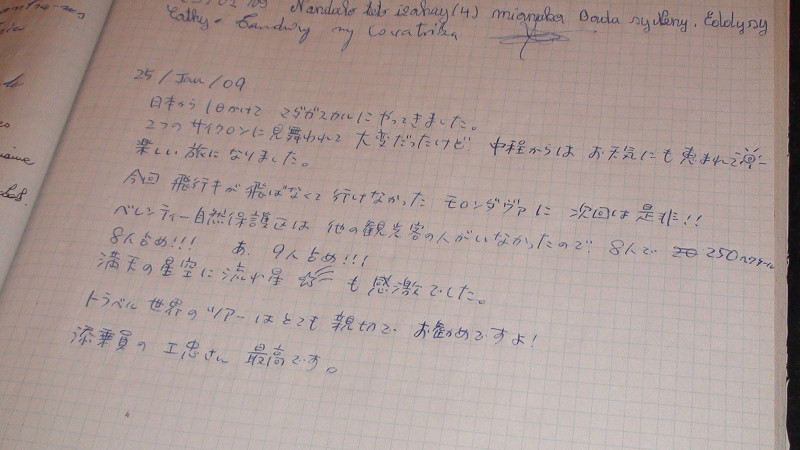 Nandalo teto izahay (4) mianaka Dada sy Neny, Eddy sy
Cathy.
25/Jan/09
日本から1日かけて マダガスカルにやってきました。
2つのサイクロンに見舞われて 大変だったけど 中程からは お天気にも 恵まれて
楽しい旅になりました。
今回 飛行キが飛ばなくて 行けなかった モロンダヴァに 次回は 是非!!
ベレンティー自然保護区は 他の観光客の人がいなかったので 8人で 250ヘクタール
8人占め!!! あ、9人占め!!!
満天の星空に 流れ星 も 感激でした。
トラベル世界の ツアーは とても 親切で お勧めですよ!
添乗員の 工忠さん 最高です。